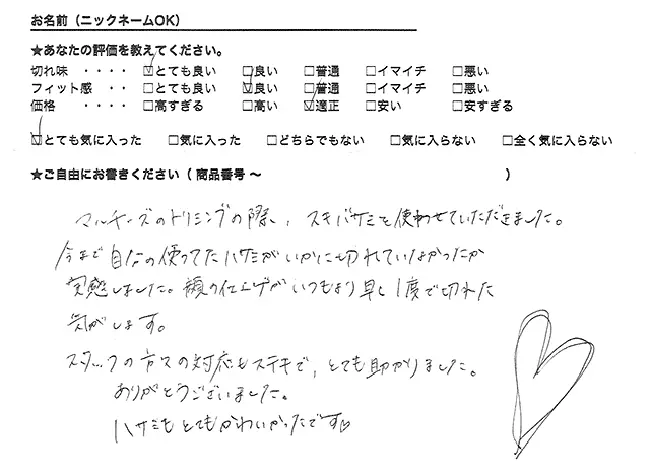 お名前（ニックネームOK）
★あなたの評価を教えてください。
切れ味 ・・・・ ☑とても良い □良い □普通 □イマイチ □悪い
フィット感 ・・・・ □とても良い ☑良い □普通 □イマイチ □悪い
価格 ・・・・ □高すぎる □高い ☑適正 □安い □安すぎる
☑とても気に入った □気に入った □どちらでもない □気に入らない □全く気に入らない
★ご自由にお書きください（ 商品番号 ～ ）
マルチーズのトリミングの際、スキバサミを使わせていただきました。
今まで自分の使ってたハサミがいかに切れていなかったか
実感しました。顔の仕上げがいつもより早く1度で切れた
気がします。
スタッフの方々の対応もステキで、とても助かりました。
ありがとうございました。
ハサミもとてもかわいかったです♡